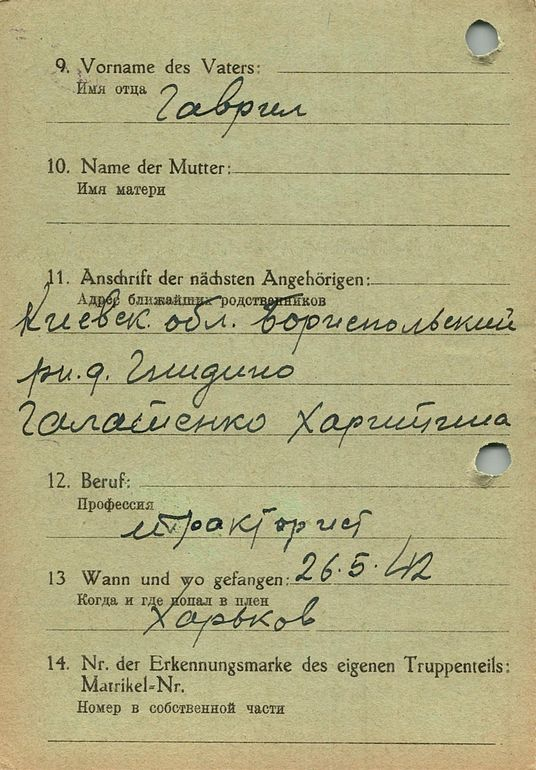 9. Vorname des Vaters:
Имя отца
Гаврил
10. Name der Mutter:
Имя матери
11. Anschrift der nächsten Angehörigen:
Адрес ближайших родственников
Киевск. обл. Бориспольский
рн. д. Гнидино
Галатенко
12. Beruf:
Профессия
тракторист
13 Wann und wo gefangen: 26.5.42
Когда и где попал в плен
Харьков
14. Nr. der Erkennungsmarke des eigenen Truppenteils:
Matrikel-Nr.
Номер в собственной части